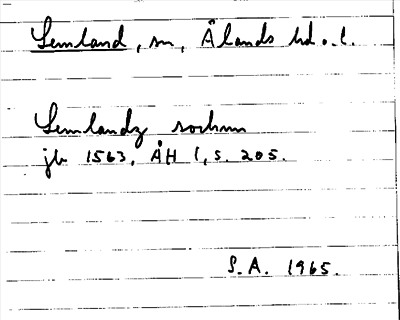 Lemland, sn, Ålands hd o. l.
Lemlandz sochnn
jb 1563, ÅH 1, s. 205.
S.A. 1965.